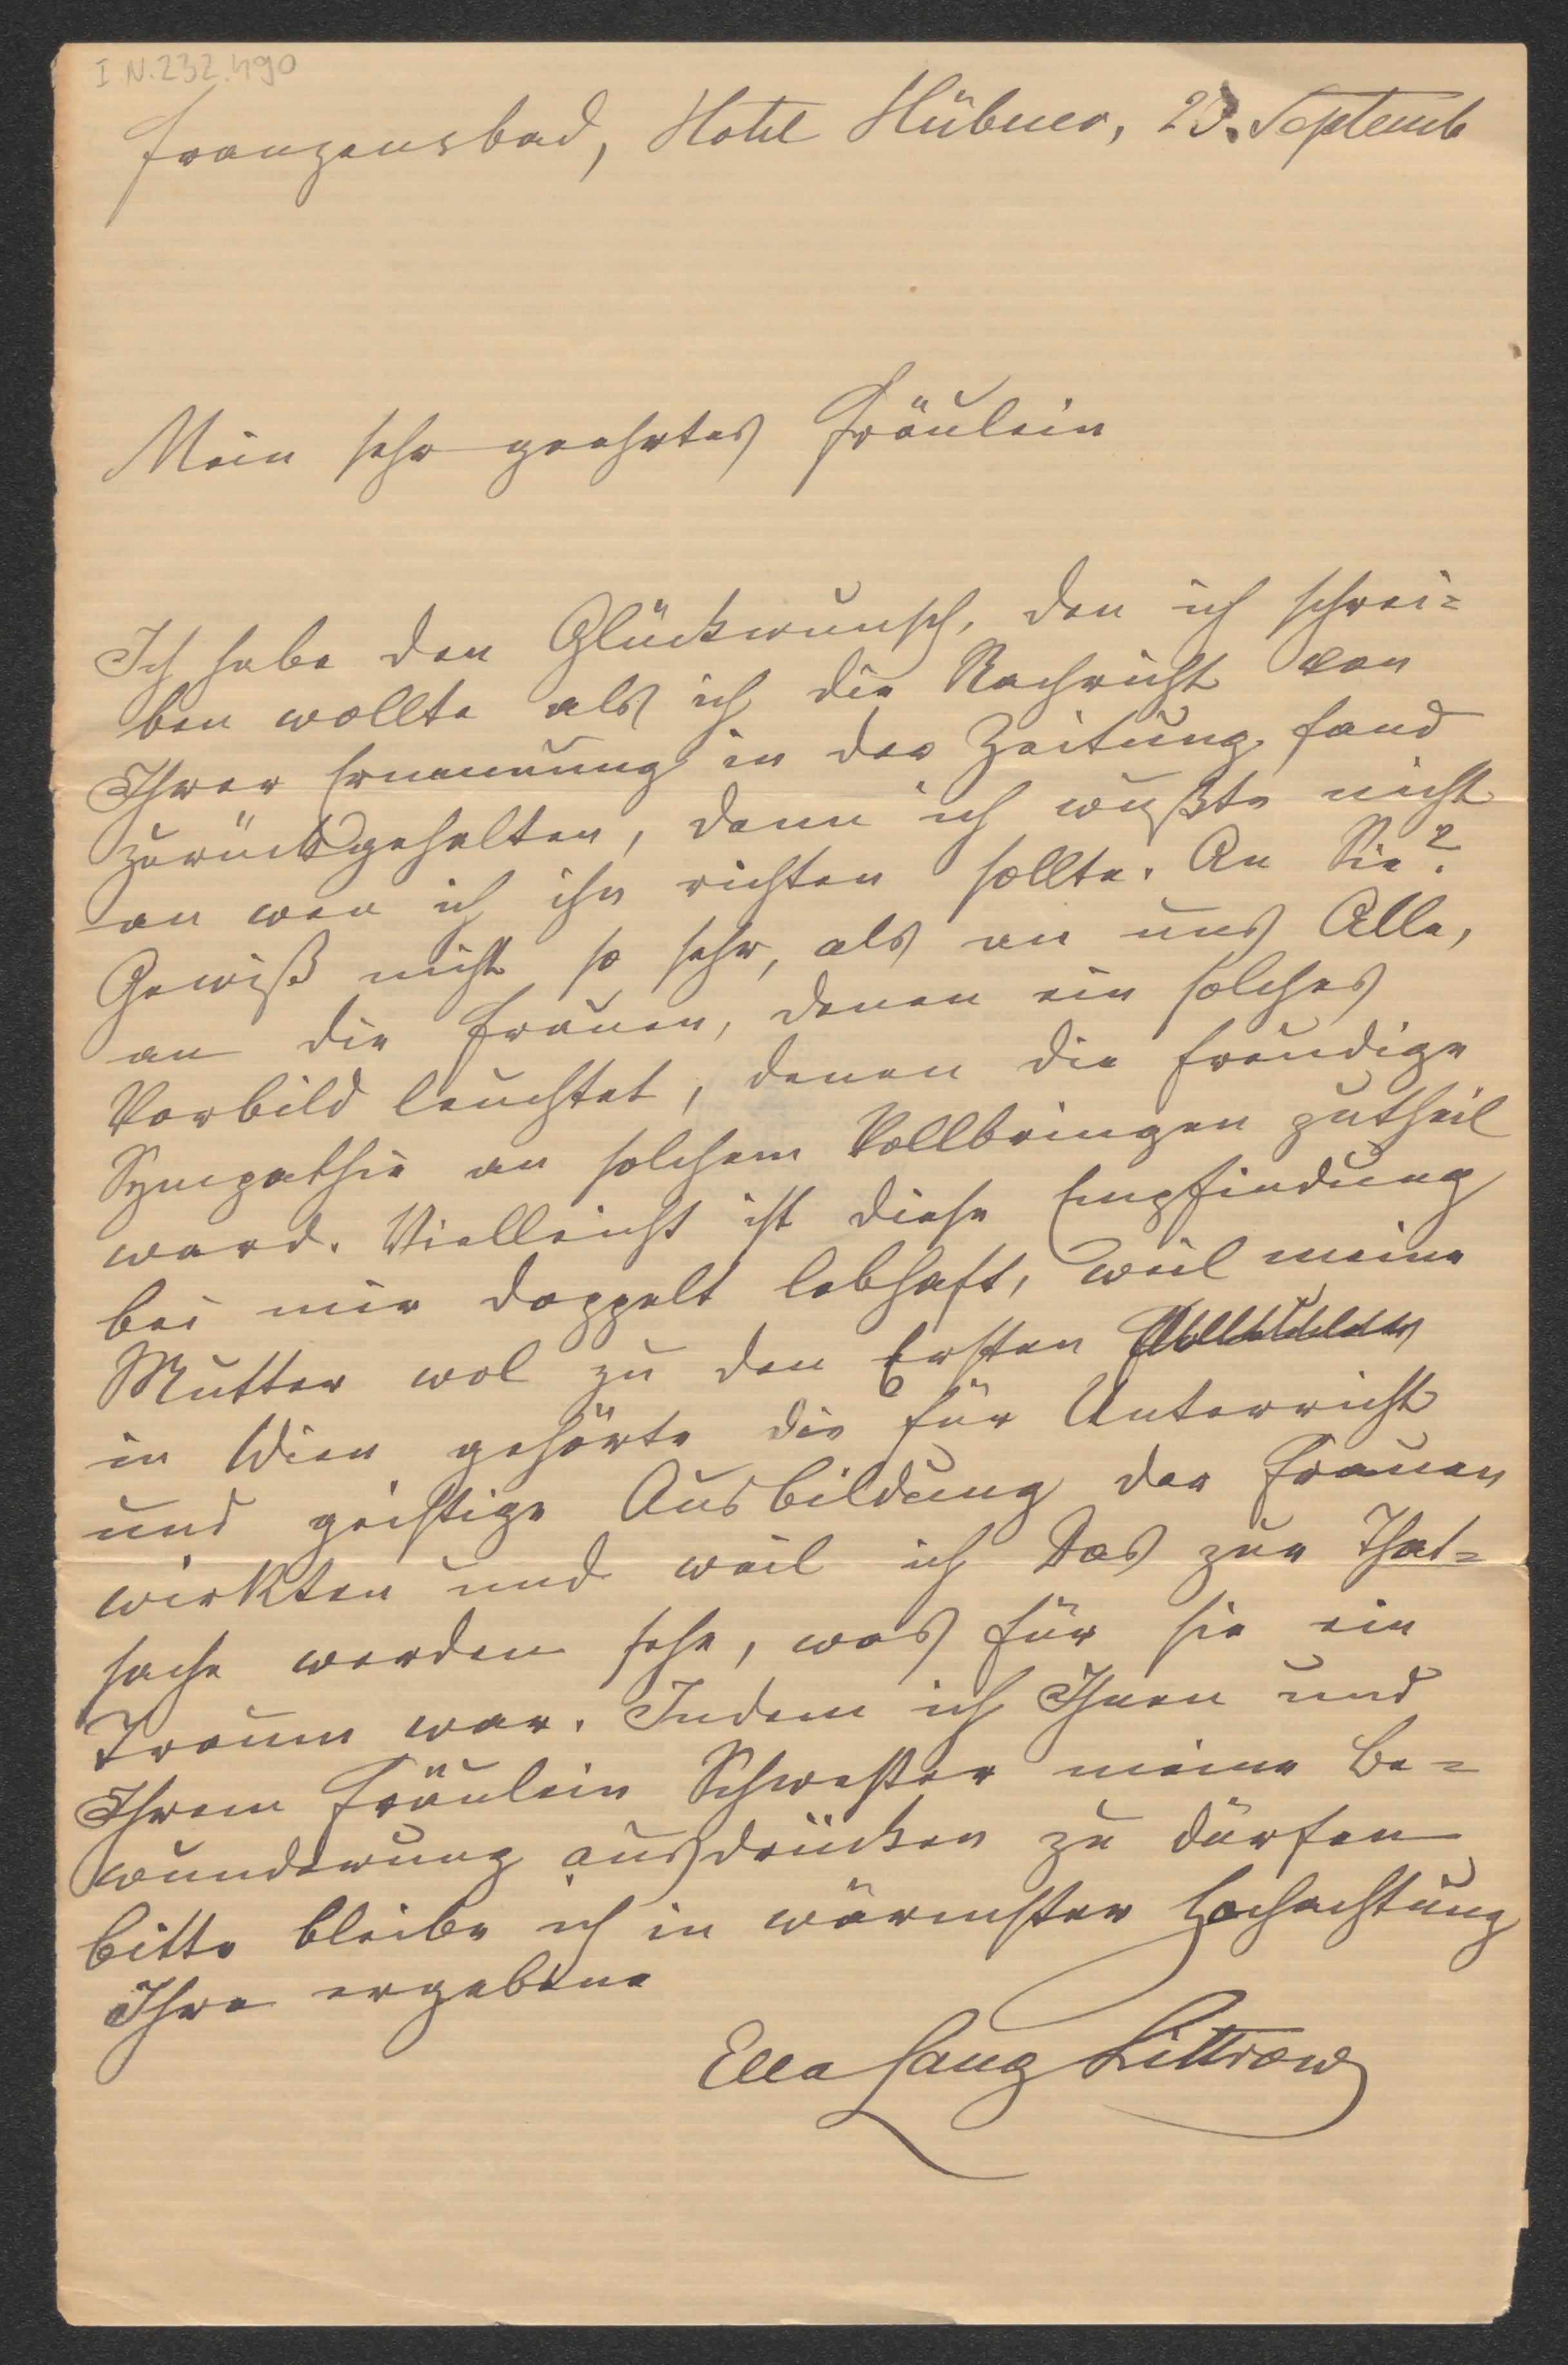 I N. 232.490
Franzensbad, Hotel Hübner, 23. Septemb
Mein sehr geehrtes Fräulein
Ich habe den Glückwunsch, den ich schrei=
ben wollte als ich die Nachricht von
Ihrer Ernennung in der Zeitung fand
zurückgehalten, denn ich wußte nicht
an wen ich ihn richten sollte. An Sie?
Gewiß nicht so sehr, als an uns Alle,
an die Frauen, denen ein solches
Vorbild leuchtet, denen die freudige
Sympathie an solchem Vollbringen zutheil
ward. Vielleicht ist diese Empfindung
bei mir doppelt lebhaft, weil meine
Mutter wol zu den Ersten
in Wien gehörte die für Unterricht
und geistige Ausbildung der Frauen
wirkten und weil ich Das zur That=
sache werden sehe, was für sie ein
Traum war. Indem ich Ihnen und
Ihrem Fräulein Schwester meine Be=
wunderung ausdrücken zu dürfen
bitte bleibe ich in wärmster Hochachtung
Ihre ergebene
Ella Lang Littrow